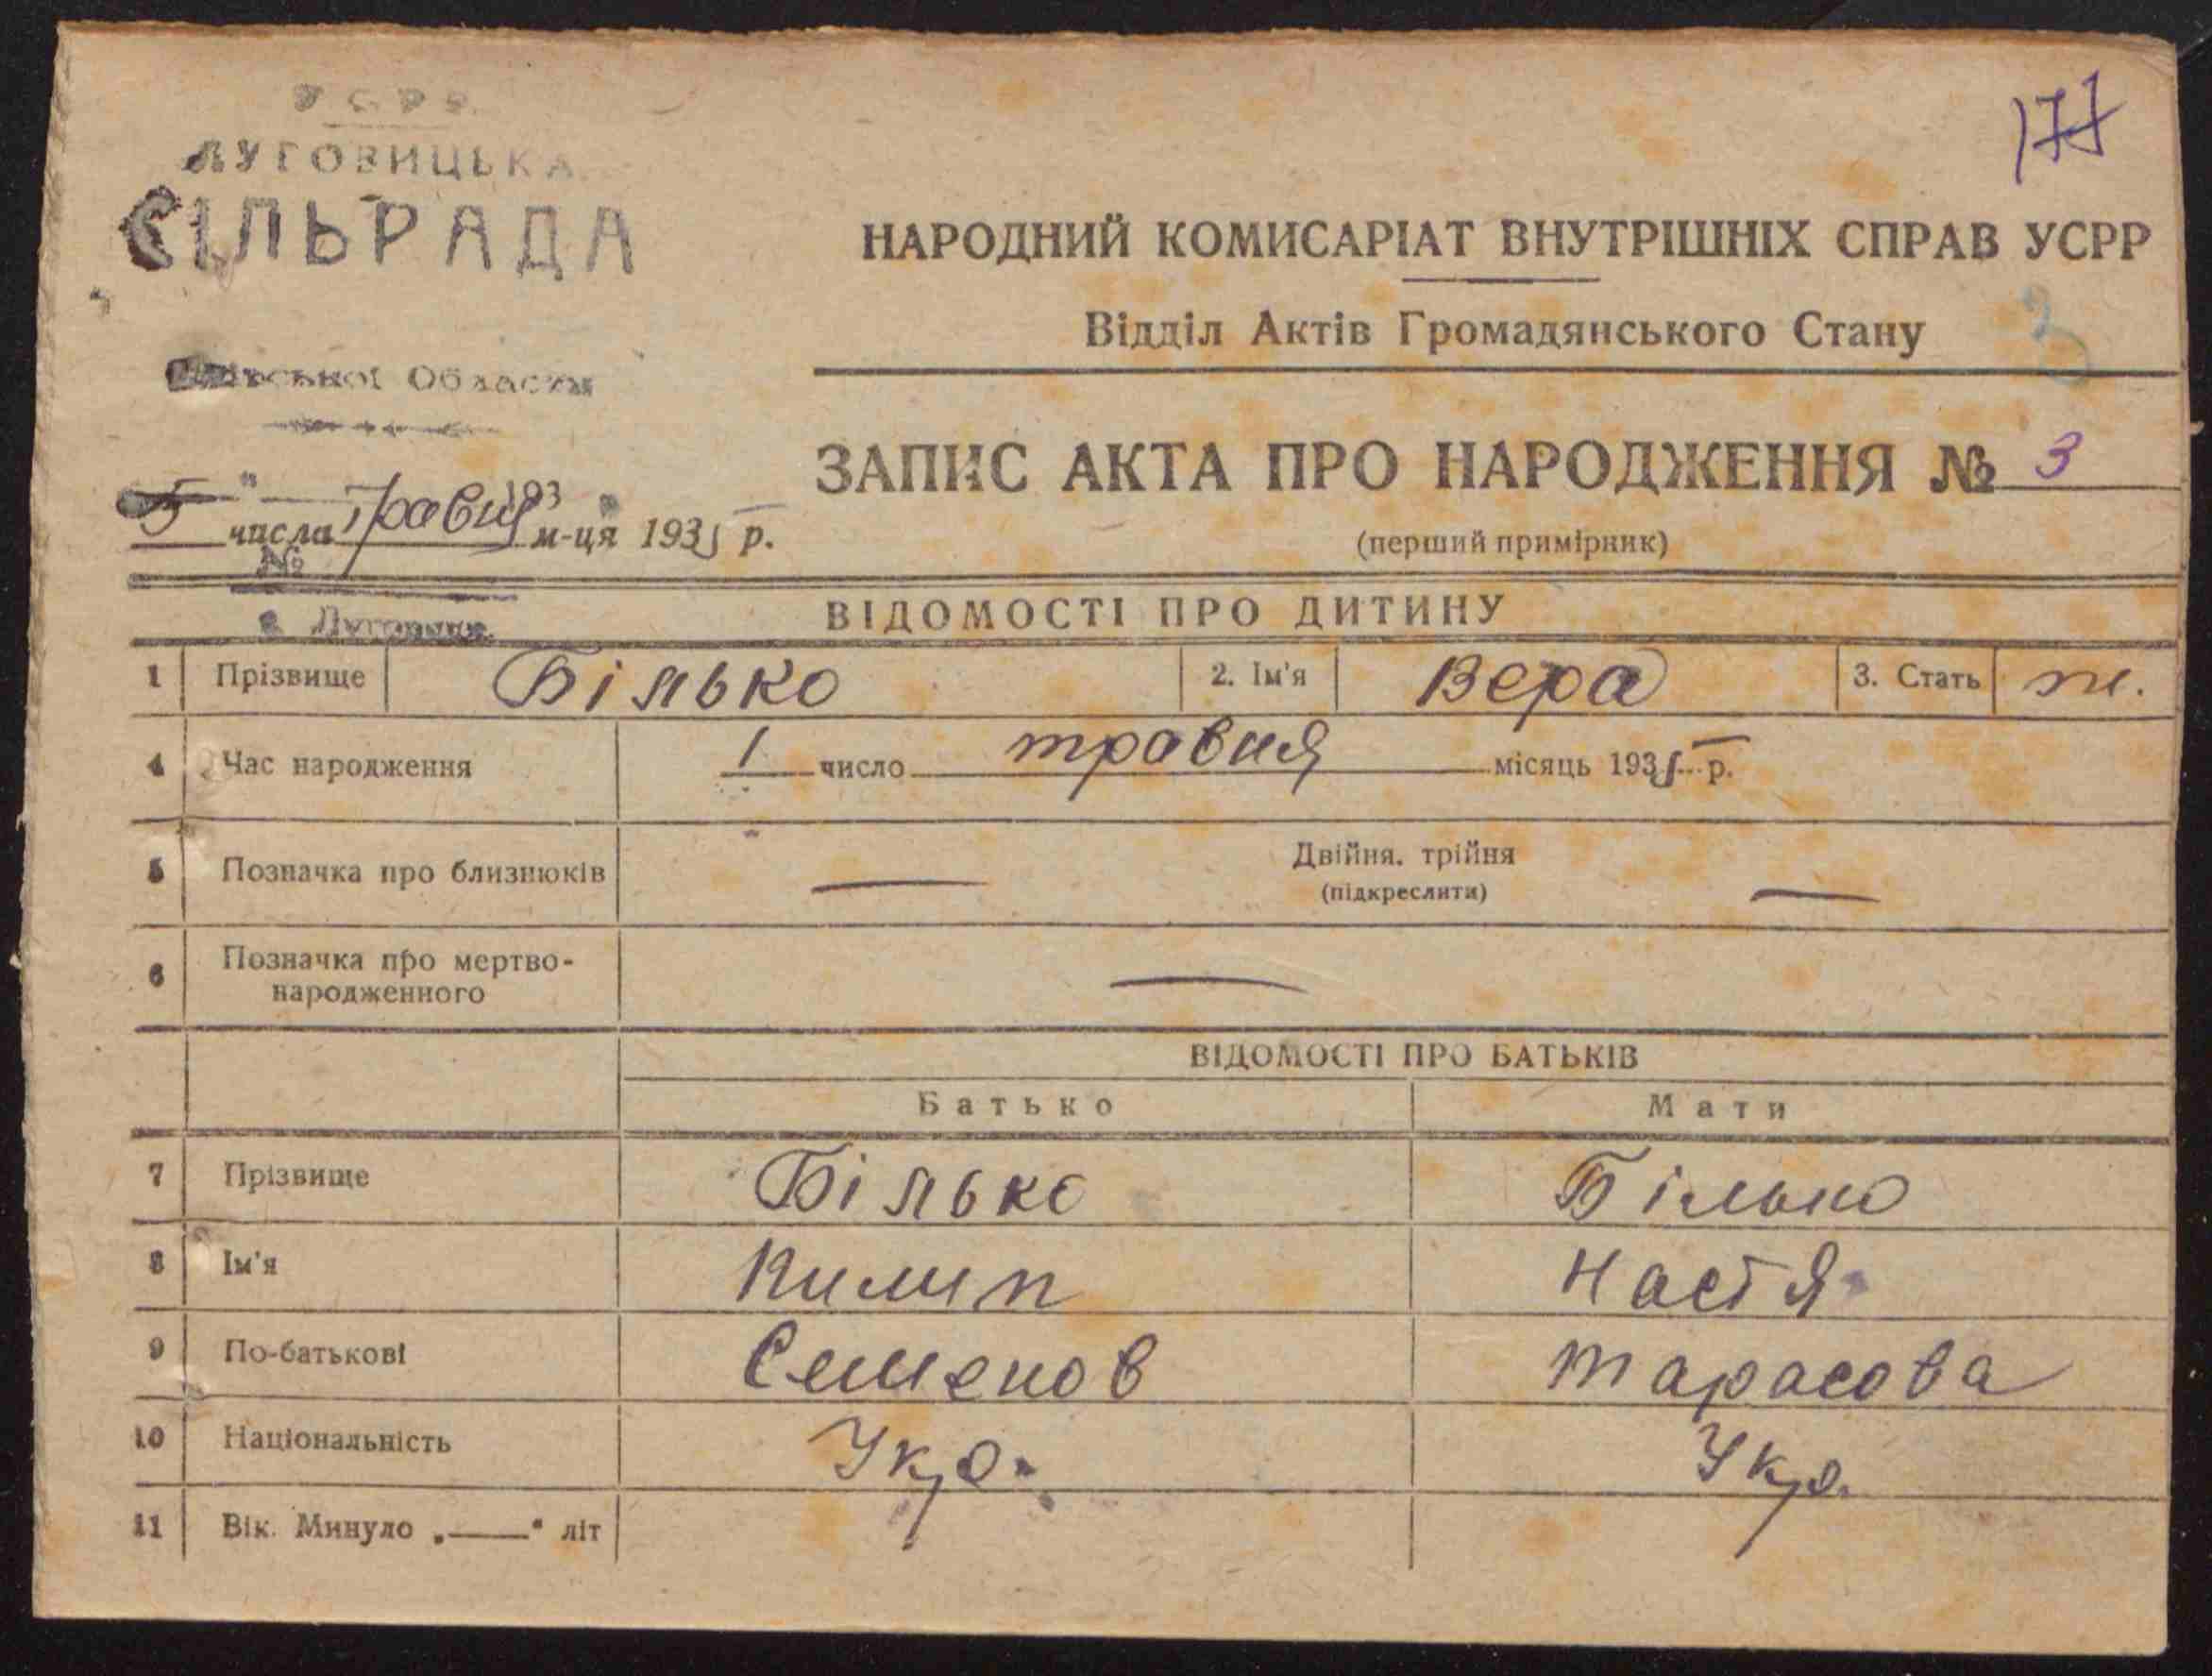 УСРР
ЛУГОВИЦЬКА
СІЛЬРАДА
Області
177
НАРОДНИЙ КОМИСАРІАТ ВНУТРІШНІХ СПРАВ УСРР
Відділ Актів Громадянського Стану
ЗАПИС АКТА ПРО НАРОДЖЕННЯ № 3
(перший примірник)
5 числа травня м-ця 1935 р.
193
№
ВІДОМОСТІ ПРО ДИТИНУ
1 Прізвище Білько 2. Ім'я Вера 3. Стать ж.
4 Час народження 1 число травня місяць 1935 р.
5 Позначка про близнюків — Двійня, трійня —
(підкреслити)
6 Позначка про мертво-
народженного —
ВІДОМОСТІ ПРО БАТЬКІВ
Батько Мати
7 Прізвище Білько Білько
8 Ім'я Пилип Настя
9 По-батькові Семенов Тарасова
10 Національність Укр. Укр.
11 Вік. Минуло „——" літ